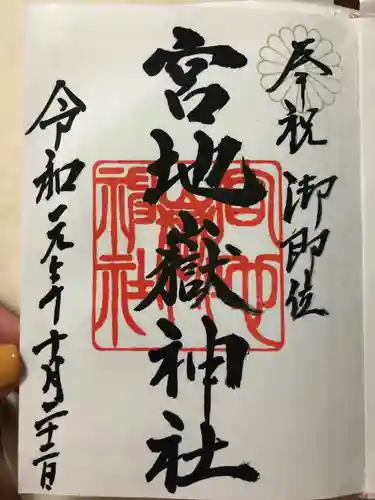 奉祝 御即位
宮地嶽神社
令和元年十月二十二日
宮地嶽神社